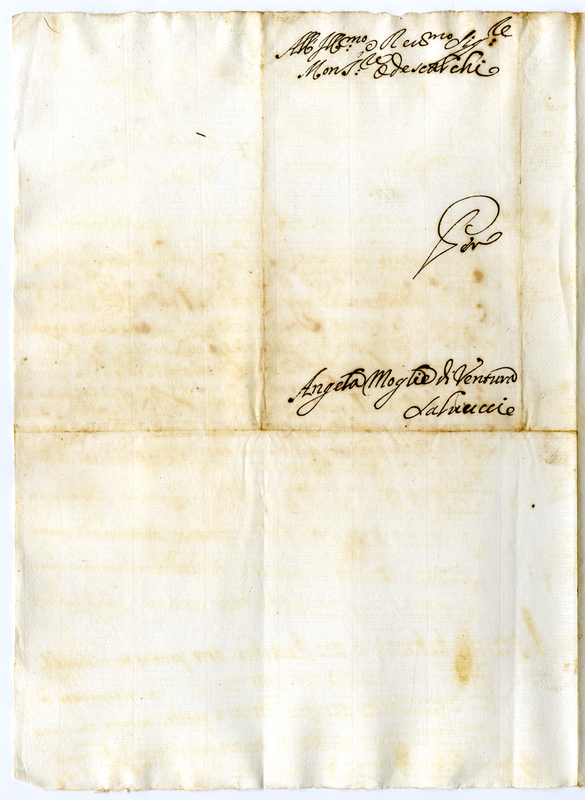 All Ill.mo e Reu.mo Sig.re
Mons.re Odescalchi
Per
Angela Moglie di Venturo
Saluucci